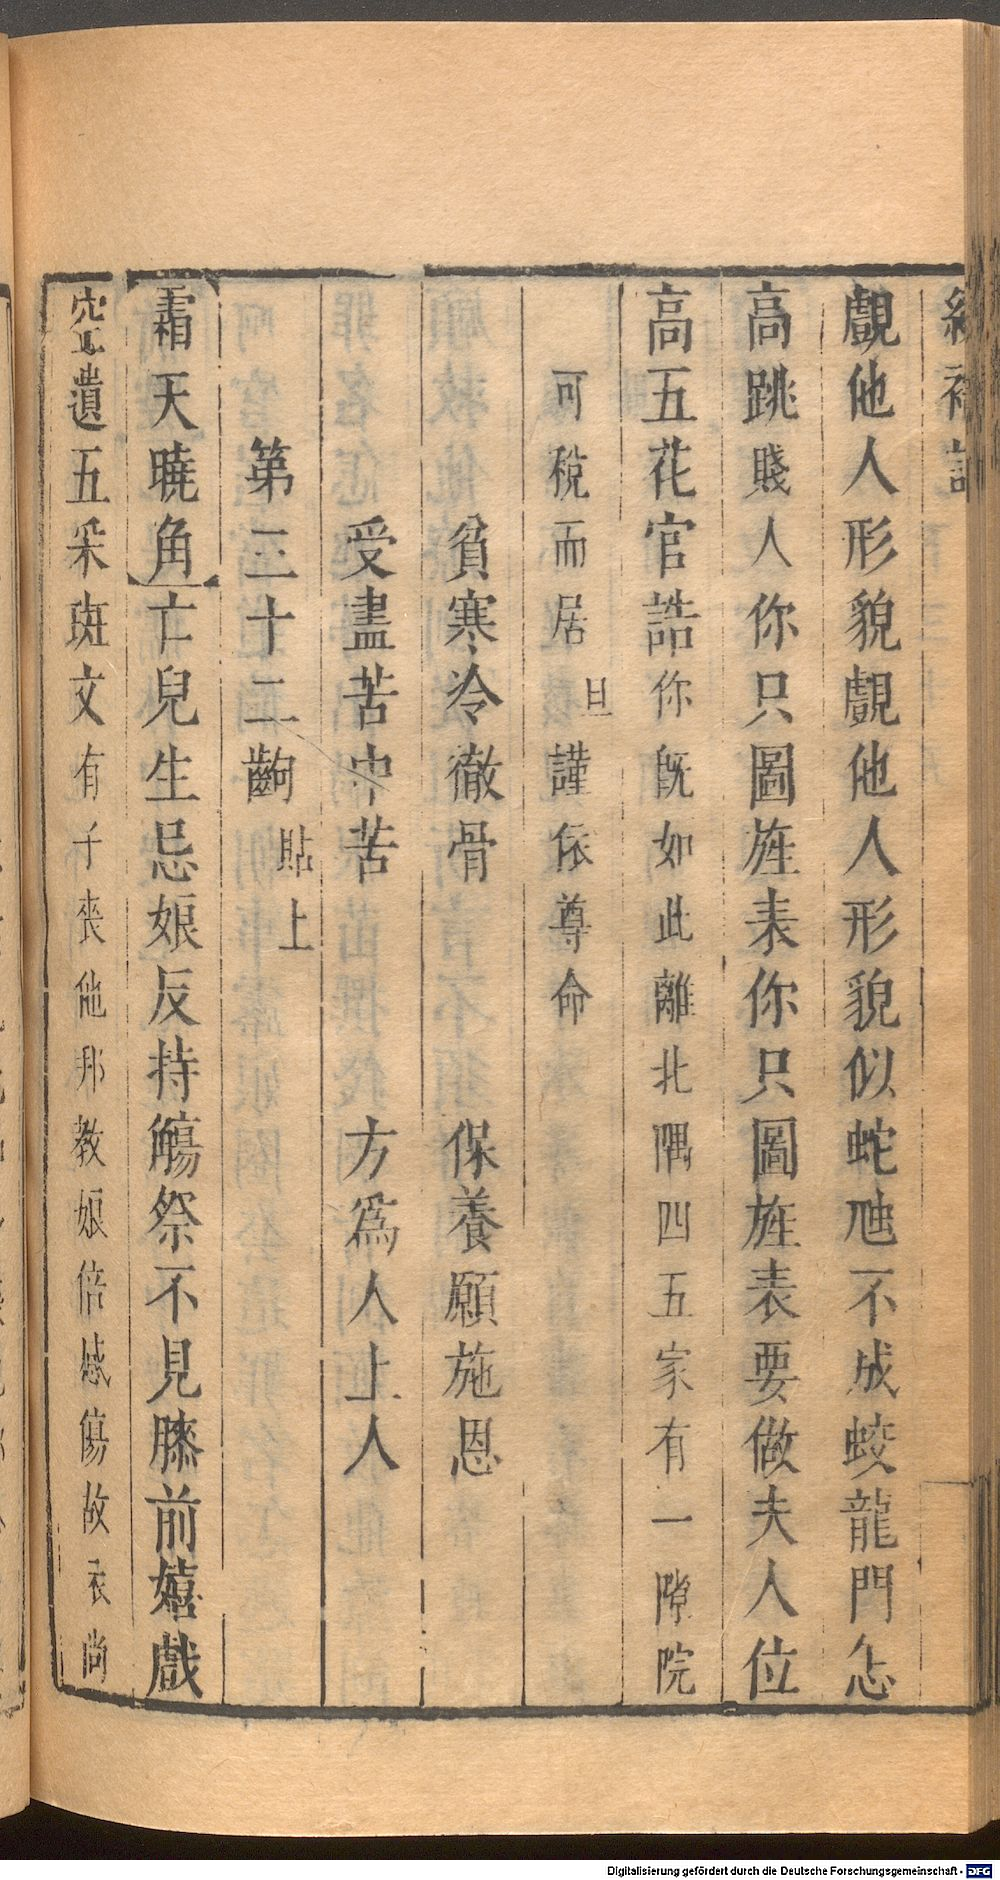 覷他人形貌覷他人形貌似蛇虺不成蛟龍門怎
高跳賤人你只圖旌表你只圖旌表要做夫人位
高五花官誥你既如此離北隅四五家有一隙院
可稅而居旦謹依尊命
貧寒冷徹骨　保養願施恩
受盡苦中苦　方爲人上人
第三十二齣貼上
霜天曉角亡兒生忌娘反持觴祭不見膝前嬉戲
空遺五采斑文有子喪他邦教娘倍慼傷故衣尚
Digitalisierung gefördert durch die Deutsche Forschungsgemeinschaft - DFG